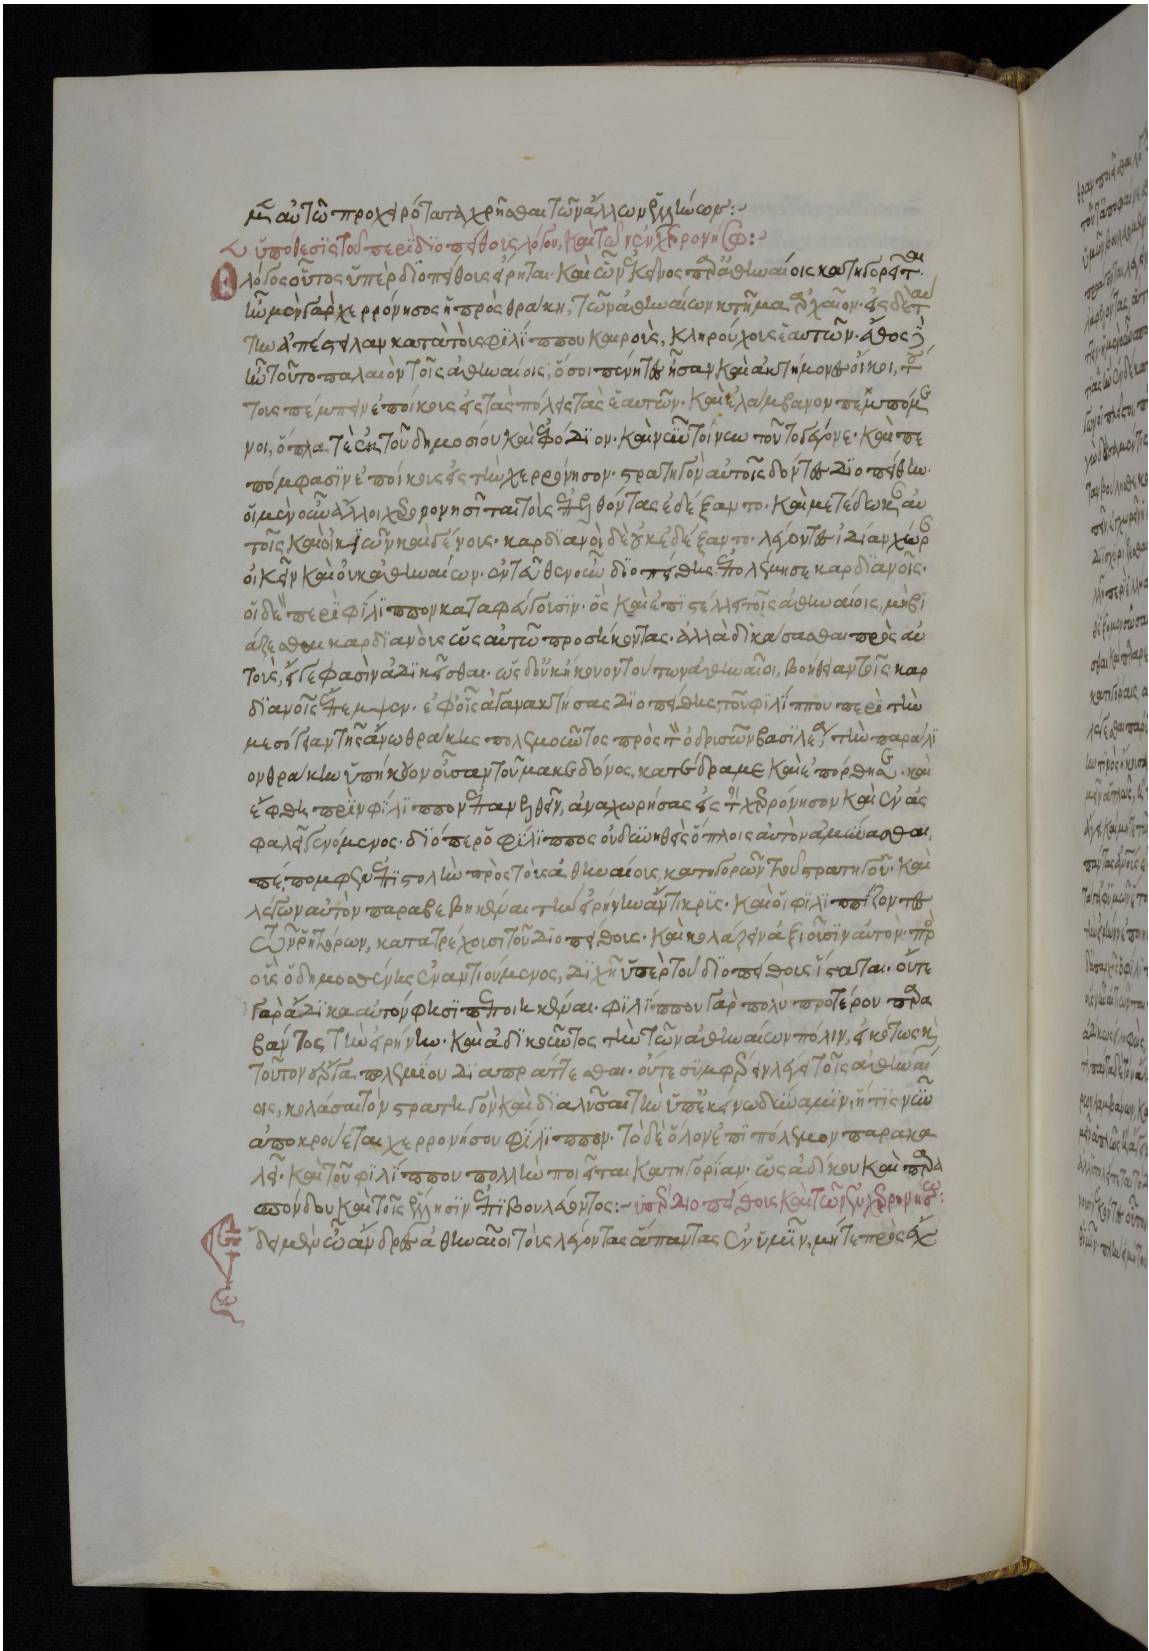 μεν αὐτῶ προχειρότατα χρῆσθαι τῶν ἄλλων ἑλλήνων:~
ὑπόθεσις τοῦ περὶ διοπείθους λόγου, καὶ τῶν ἐν χερρονήσω:~
Ὁ λόγος οὗτος ὑπὲρ διοπείθους εἴρηται· καὶ ὧν ἐκεῖνος παρὰ ἀθηναίοις κατηγορεῖται·
ἦν μὲν γὰρ χερρόνησος ἡ πρὸς θράκη, τῶν ἀθηναίων κτῆμα ἀρχαῖον· εἰς δὲ ταύ
την ἀπέστειλαν κατὰ τοὺς φιλίππου καιροὺς, κληρούχους ἑαυτῶν· ἔθος δὲ
ἦν τοῦτο παλαιὸν τοῖς ἀθηναίοις, ὅσοι πένητες ἦσαν καὶ ἀκτήμονες οἴκοι, τού
τους πέμπειν ἐποίκους εἰς τὰς πόλεις τὰς ἑαυτῶν· καὶ ἐλάμβανον πεμπόμε
νοι, ὅπλα τὲ ἐκ τοῦ δημοσίου καὶ ἐφόδιον· καὶ νῦν τοίνυν τοῦτο γέγονε· καὶ πε
πόμφασιν ἐποίκους εἰς τὴν χερρόνησον· στρατηγὸν αὐτοῖς δόντες διοπείθην·
οἱ μὲν οὖν ἄλλοι χερρονησῖται τοὺς ἐπελθόντας ἐδέξαντο· καὶ μετέδωκαν αὐ
τοῖς καὶ οἰκιῶν καὶ γῆς· καρδιανοὶ δὲ οὐκ ἐδέξαντο· λέγοντες ἰδίαν χώραν
οἰκεῖν καὶ οὐκ ἀθηναίων· ἐντεῦθεν οὖν διοπείθης ἐπολέμησε καρδιανοῖς·
οἱ δὲ ἐπὶ φίλιππον καταφεύγουσιν· ὃς καὶ ἐπιστέλλει τοῖς ἀθηναίοις, μὴ βι
άζεσθαι καρδιανοὺς ὡς αὐτῶ προσήκοντας· ἀλλὰ δικάσασθαι πρὸς αὐ
τοὺς, εἴ γέ φασιν ἀδικεῖσθαι· ὡς δ' οὐκ ἤκουον τούτων ἀθηναῖοι, βοήθειαν τοῖς καρ
διανοῖς ἔπεμψεν· ἐφ' οἷς ἀγανακτήσας διοπείθης, τοῦ φιλίππου περὶ τὴν
μεσόγειαν τῆς ἄνω θράκης πολεμοῦντος πρὸς τὸν ὀδρισῶν βασιλέα, τὴν παράλι
ον θράκην ὑπήκοον οὖσαν τοῦ μακεδόνος, κατέδραμε καὶ ἐπόρθησε· καὶ
ἔφθη πρὶν φίλιππον ἐπανελθεῖν, ἀναχωρήσας εἰς τὴν χερρόνησον καὶ ἐν ἀσ
φαλεῖ γενόμενος· διόπερ ὁ φίλιππος οὐ δυνηθεὶς ὅπλοις αὐτὸν ἀμύνασθαι,
πέπομφεν ἐπιστολὴν πρὸς τοὺς ἀθηναίους, κατηγορῶν τοῦ στρατηγοῦ· καὶ
λέγων αὐτὸν παραβεβηκέναι τὴν εἰρήνην ἄντικρυς· καὶ οἱ φιλιππίζοντες
τῶν ῥητόρων, κατατρέχουσι τοῦ διοπείθους· καὶ κολάζειν ἀξιοῦσιν αὐτόν· πρὸς
οὓς ὁ δημοσθένης ἐναντιούμενος, διχῆ ὑπὲρ τοῦ διοπείθους ἵσταται· οὔτε
γὰρ ἄδικα αὐτόν φησι πεποιηκέναι· φιλίππου γὰρ πολὺ πρότερον παρα
βάντος τὴν εἰρήνην· καὶ ἀδικοῦντος τὴν τῶν ἀθηναίων πόλιν, εἰκότως καὶ
τοῦτον ὄντα πολεμίου διαπράττεσθαι· οὔτε συμφέρειν λέγει τοῖς ἀθηναί
οις, κολάσαι τὸν στρατηγὸν καὶ διαλῦσαι τὴν ὑπ' ἐκείνω δύναμιν, ἥτις νῦν
ἀποκρούεται χερρονήσου φίλιππον· τὸ δὲ ὅλον ἐπὶ πόλεμον παρακα
λεῖ· καὶ τοῦ φιλίππου πολλὴν ποιεῖται κατηγορίαν· ὡς ἀδίκου καὶ παρα
σπόνδου καὶ τοῖς ἕλλησιν ἐπιβουλεύοντος:~ ὑπὲρ διοπείθους καὶ τῶν ἐν χερρονήσω:
ἔδει μὲν ὦ ἄνδρες ἀθηναῖοι τοὺς λέγοντας ἅπαντας ἐν ὑμῖν, μήτε πρὸς ἔχ